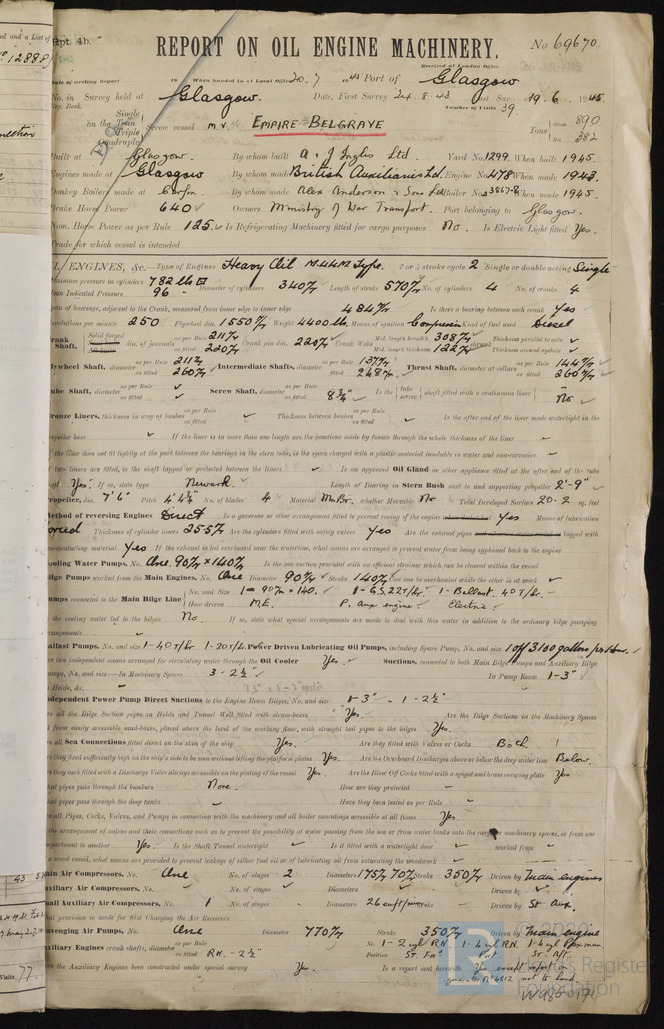 Rpt. 4b.
REPORT ON OIL ENGINE MACHINERY.
No 69670.
Received at London Office
Date of writing Report 19 When handed in at Local Office 20. 7 1945 Port of Glasgow
No. in Survey held at Glasgow. Date, First Survey 24. 8. 43 Last Sur. 19. 6. 1945.
Reg. Book. Number of Visits 39.
Single
on the Twin Screw vessel M.V. EMPIRE BELGRAVE Tons Gross 890
Triple
Quadruple
Net 382
Built at Glasgow. By whom built A. & J. Inglis Ltd. Yard No. 1299. When built 1945.
Engines made at Glasgow By whom made British Auxiliaries Ltd. Engine No. 478 When made 1943.
Donkey Boilers made at By whom made Alex Anderson & Sons Ltd Boiler No. When made 1945.
Brake Horse Power 640 Owners Ministry of War Transport. Port belonging to Glasgow.
Nom. Horse Power as per Rule 125. Is Refrigerating Machinery fitted for cargo purposes No. Is Electric Light fitted Yes.
Trade for which vessel is intended
OIL ENGINES, &c. Type of Engines Heavy Oil M44M Type. 2 or 4 stroke cycle 2 Single or double acting Single
Maximum pressure in cylinders 782 lbs Diameter of cylinders 340 Length of stroke 570 No. of cylinders 4 No. of cranks 4
Mean Indicated Pressure 96
Span of bearings, adjacent to the Crank, measured from inner edge to inner edge 484 Is there a bearing between each crank Yes
Revolutions per minute 250 Flywheel dia. 1550 Weight 4400 lbs. Means of ignition Compression Kind of fuel used Diesel
Crank Shaft, Solid forged dia. of journals as per Rule 211 as fitted 220 Crank pin dia. 220 Crank Webs Mid. length breadth 308 Thickness parallel to axis
Mid. length thickness 122 Thickness around eyehole
Flywheel Shaft, diameter as per Rule 211 as fitted 260 Intermediate Shafts, diameter as per Rule 137 as fitted Thrust Shaft, diameter at collars as per Rule 144 as fitted 260
Tube Shaft, diameter as per Rule as fitted Screw Shaft, diameter as per Rule as fitted 8 3/4" Is the tube screw shaft fitted with a continuous liner No
Bronze Liners, thickness in way of bushes as per Rule as fitted Thickness between bushes as per Rule as fitted Is the after end of the liner made watertight in the
propeller boss If the liner is in more than one length are the junctions made by fusion through the whole thickness of the liner
If the liner does not fit tightly at the part between the bearings in the stern tube, is the space charged with a plastic material insoluble in water and non-corrosive
If two liners are fitted, is the shaft lapped or protected between the liners Is an approved Oil Gland or other appliance fitted at the after end of the tube
shaft Yes. If so, state type Newark. Length of Bearing in Stern Bush next to and supporting propeller 2'-9"
Propeller, dia. 7' 6" Pitch 4' 4 3/4" No. of blades 4 Material whether Moveable No Total Developed Surface 20.2 sq. feet
Method of reversing Engines Direct Is a governor or other arrangement fitted to prevent racing of the engine Yes Means of lubrication
forced Thickness of cylinder liners 25.5 Are the cylinders fitted with safety valves Yes Are the exhaust pipes lagged with
non-conducting material Yes If the exhaust is led overboard near the waterline, what means are arranged to prevent water from being syphoned back to the engine
Cooling Water Pumps, No. One. 90 x 140 Is the sea suction provided with an efficient strainer which can be cleared within the vessel
Bilge Pumps worked from the Main Engines, No. One Diameter 90 Stroke 140 Can one be overhauled while the other is at work
Pumps connected to the Main Bilge Line No. and Size 1 - 90 x 140. 1 - G.S. 22T/hr. 1 - Ballast. 40 T/hr.
How driven M.E. P. Aux engine. Electric.
Is the cooling water led to the bilges No. If so, state what special arrangements are made to deal with this water in addition to the ordinary bilge pumping
arrangements
Ballast Pumps, No. and size 1 - 40 T/hr. 1 - 20 T/hr. Power Driven Lubricating Oil Pumps, including Spare Pump, No. and size 1 off 3100 gallons per hour.
Are two independent means arranged for circulating water through the Oil Cooler Yes. Suctions, connected to both Main Bilge Pumps and Auxiliary Bilge
Pumps, No. and size:—In Machinery Spaces 3 - 2 1/2" In Pump Room 1 - 3"
In Holds, &c.
Independent Power Pump Direct Suctions to the Engine Room Bilges, No. and size 1 - 3" - 1 - 2 1/2"
Are all the Bilge Suction pipes in Holds and Tunnel Well fitted with strum-boxes Yes. Are the Bilge Suctions in the Machinery Spaces
led from easily accessible mud-boxes, placed above the level of the working floor, with straight tail pipes to the bilges Yes.
Are all Sea Connections fitted direct on the skin of the ship Yes. Are they fitted with Valves or Cocks Both.
Are they fixed sufficiently high on the ship's side to be seen without lifting the platform plates Yes. Are the Overboard Discharges above or below the deep water line Below.
Are they each fitted with a Discharge Valve always accessible on the plating of the vessel Yes. Are the Blow Off Cocks fitted with a spigot and brass covering plate Yes
What pipes pass through the bunkers None. How are they protected
What pipes pass through the deep tanks Have they been tested as per Rule
Are all Pipes, Cocks, Valves, and Pumps in connection with the machinery and all boiler mountings accessible at all times Yes.
Is the arrangement of valves and their connections such as to prevent the possibility of water passing from the sea or from water tanks into the cargo or machinery spaces, or from one
compartment to another Yes. Is the Shaft Tunnel watertight Is it fitted with a watertight door worked from
If a wood vessel, what means are provided to prevent leakage of either fuel oil or of lubricating oil from saturating the woodwork
Main Air Compressors, No. One No. of stages 2 Diameters 175 70 Stroke 350 Driven by Main engines
Auxiliary Air Compressors, No. No. of stages Diameters Stroke Driven by
Small Auxiliary Air Compressors, No. 1 No. of stages Diameters Driven by St. Aux.
What provision is made for first Charging the Air Receivers
Scavenging Air Pumps, No. One Diameter 770 Stroke 350 Driven by Main engine
Auxiliary Engines crank shafts, diameter as per Rule as fitted No. 1 - 2 cyl R.N. 1 - 4 cyl R.N.
Position
Have the Auxiliary Engines been constructed under special survey Yes. Is a report sent herewith Yes except report
Lloyd's Register
Foundation
Visits 77.